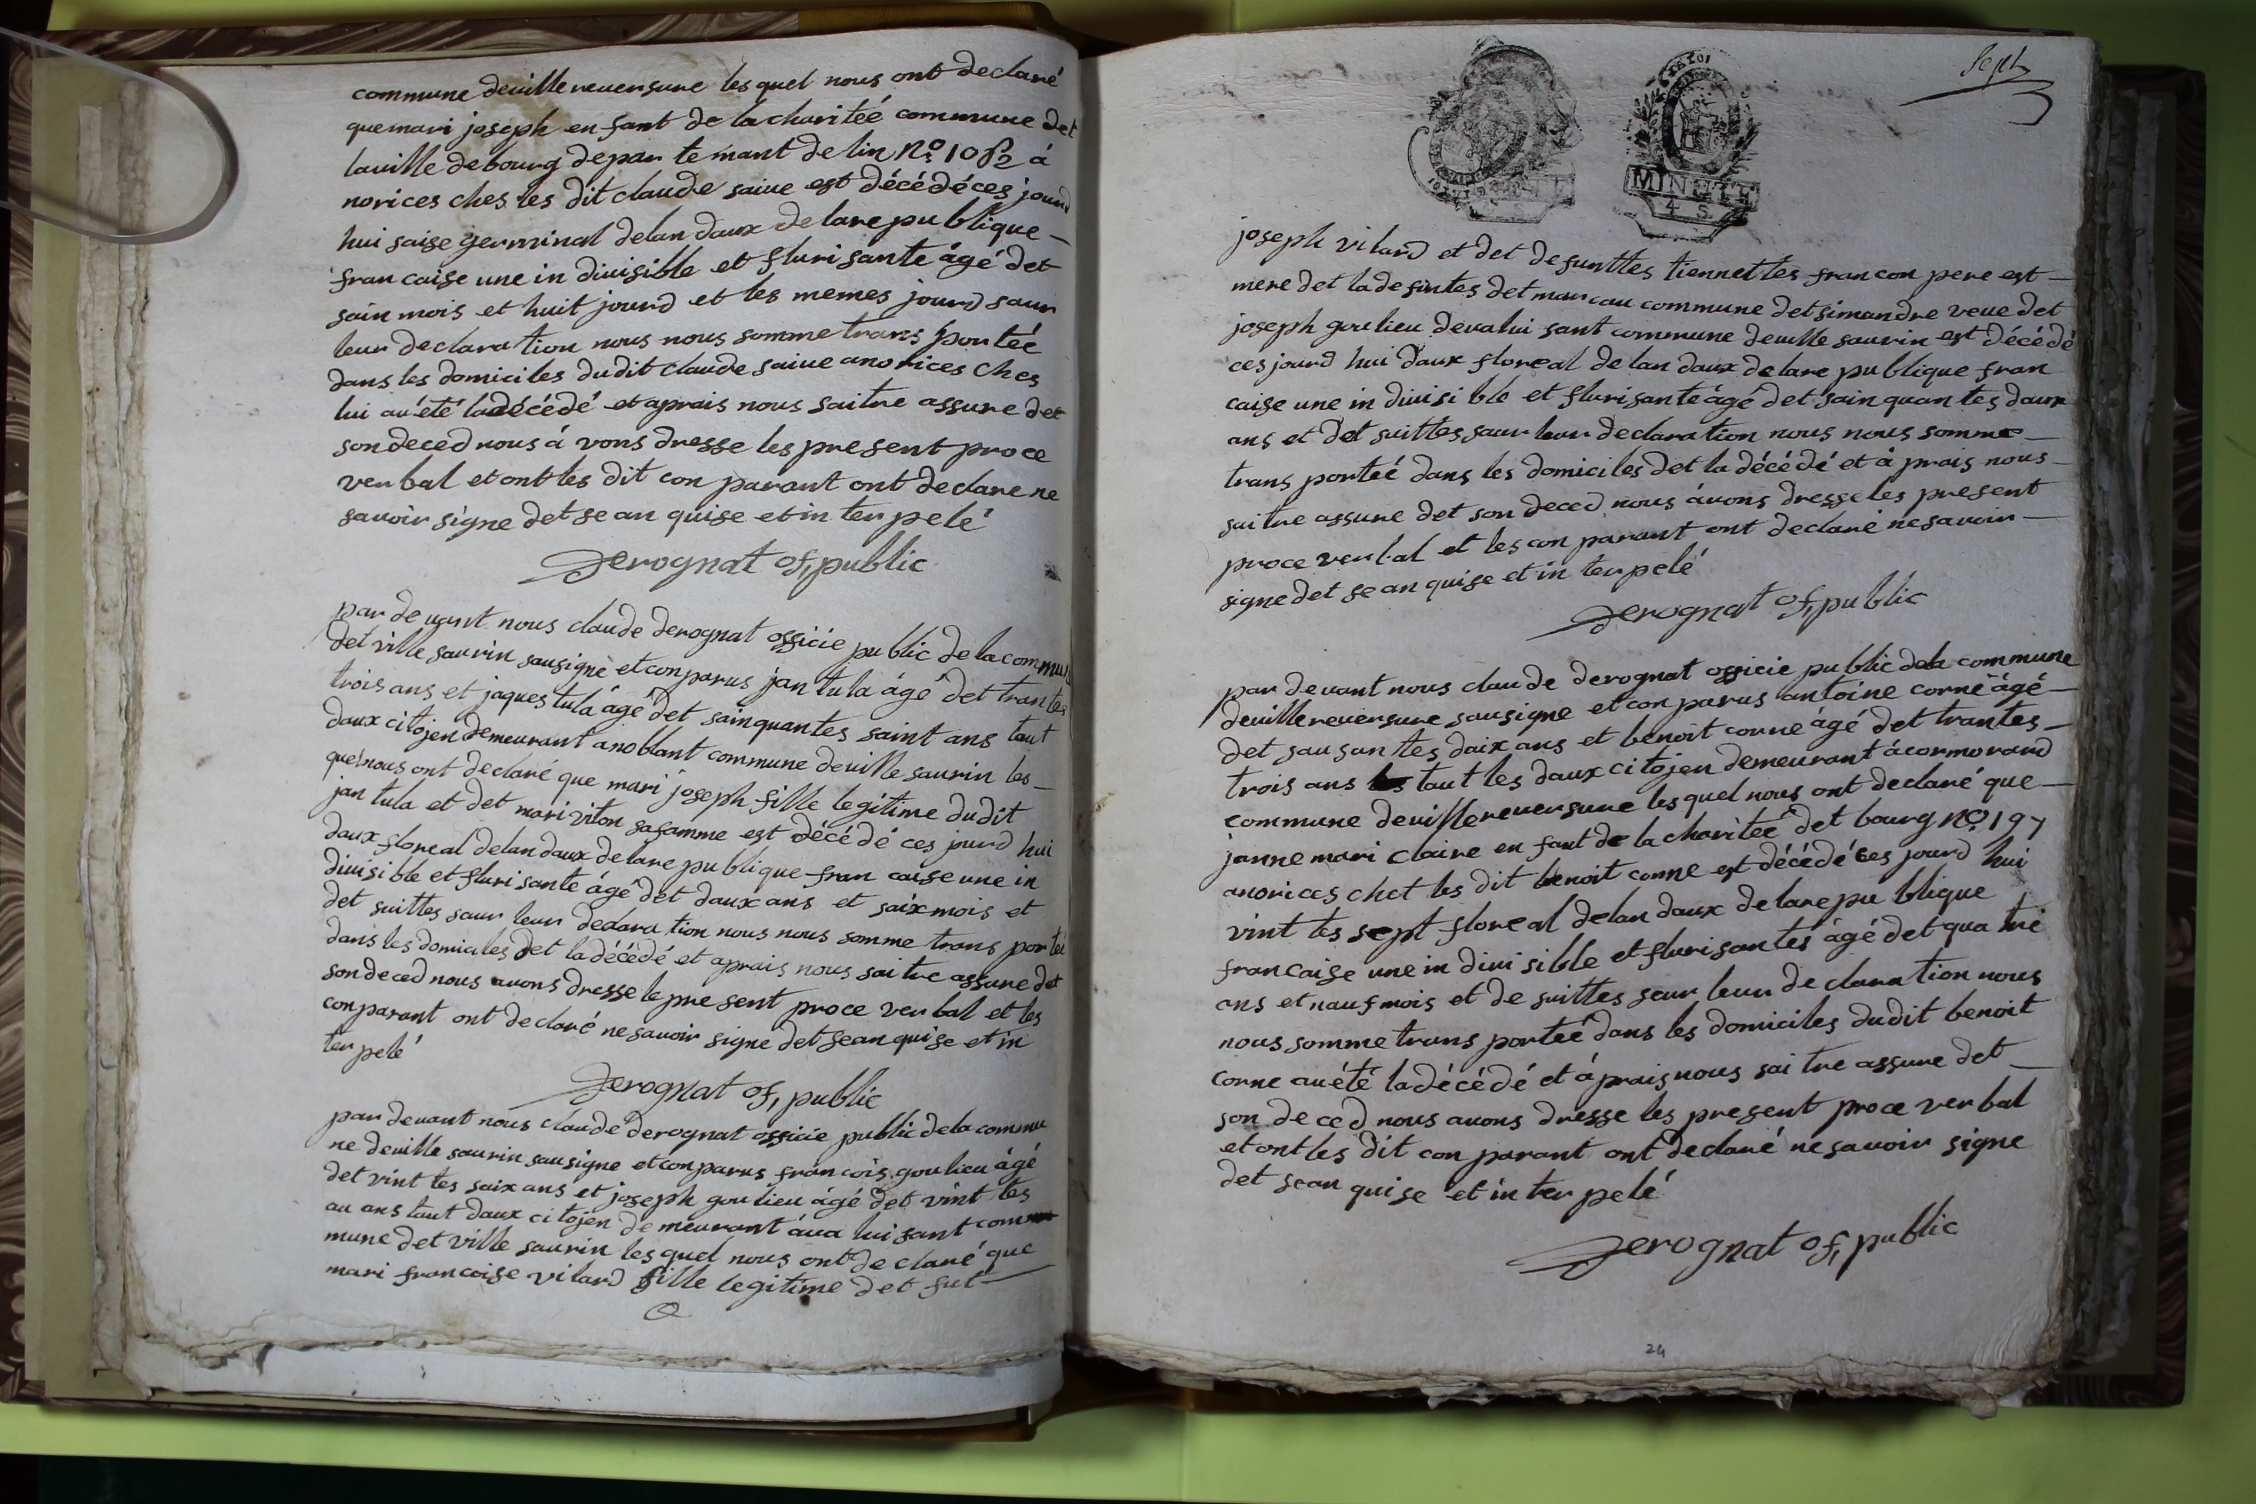 commune deville reuersure les quel nous ont declaré
que mari joseph en fant de la charitée commune det
lauille de bourg depar temant de lin No 1082 á
norices ches les dit claude saiue est décédé ces jourd
hui saise germinal delan daux de lare pu blique
fran caise une in diuisible et fluri sante âgé det
sain mois et huit jourd et les memes jourd saur
leur declara tion nous nous somme trans portée
dans les domiciles dudit claude saiue anorices ches
lui au été ladécédé et aprais nous saitre assure det
son deced nous á vons dresse les present proce
ver bal et ont les dit con parant ont declare ne
savoir signe det se an quise et in ter pelé
Derognat of, public
par de uant nous claude derognat officie public de la commu
det ville saurin sausigne et conparus jan tula ágé det trantes
trois ans et jaques tula ágé det sainquantes saint ans tout
daux citojen demeurant anoblant commune deville saurin les
quel nous ont declaré que mari joseph fille legitime dudit
jan tula et det mari viton safamme est décédé ces jourd hui
daux floreal delan daux delare publique fran caise une in
diuisi ble et fluri sante ágé det daux ans et saix mois et
det suittes saur leur declara tion nous nous somme trans portée
dans les domiciles det la décédé et aprais nous sai tre assure det
son deced nous auons dresse le pre sent proce ver bal et les
conparant ont declaré ne savoir signe det sean quise et in
ter pelé
Derognat of, public
par deuant nous claude derognat officie public dela commu
ne deville saurin sausigne et conparus francois goulieu ágé
det vint tes saix ans et joseph goulieu ágé det vint tes
au ans taut daux ci tojen de meurant áua luisant com
mune det ville saurin les quel nous ont de claré que
mari francoise vilard fille legitime det fut
Sept
MINUTE
4 S
joseph vilard et det defunttes tiennettes francon pere est
mere det la defuntes det mancau commune det simandre veue det
joseph goulieu deualui sant commune deuille saurin est décédé
ces jourd hui daux floreal de lan daux de lare publique fran
caise une in diuisi ble et flurisante ágé det sain quantes daux
ans et det suittes saur leur declaration nous nous somme
trans portée dans les domiciles det la décédé et á prais nous
saitre assure det son deced nous áuons dresse les present
proce verbal et les con parant ont declaré ne savoir
signe det se an quise et in ter pelé
Derognat of, public
par deuant nous claude derognat officie public dela commune
deuille reuersure sausigne et conparus antoine corne ágé
det sausantes daix ans et benoit corne ágé det trantes
trois ans taut les daux ci tojen demeurant ácormorand
commune deuille reuersure les quel nous ont declaré que
janne mari claire en fant de la charitée det bourg No 197
anorices chet les dit benoit corne est décédé ces jourd hui
vint tes sept floreal delan daux de lare pu blique
francaise une in diui sible et flurisantes ágé det qua tre
ans et nauf mois et de suittes saur leur de clara tion nous
nous somme trans portée dans les domiciles dudit benoit
corne au été la décédé et á prais nous sai tre assure det
son de ced nous auons dresse les present proce verbal
et ont les dit con parant ont declaré ne sauoir signe
det sean quise et in ter pelé
Derognat of, public
24